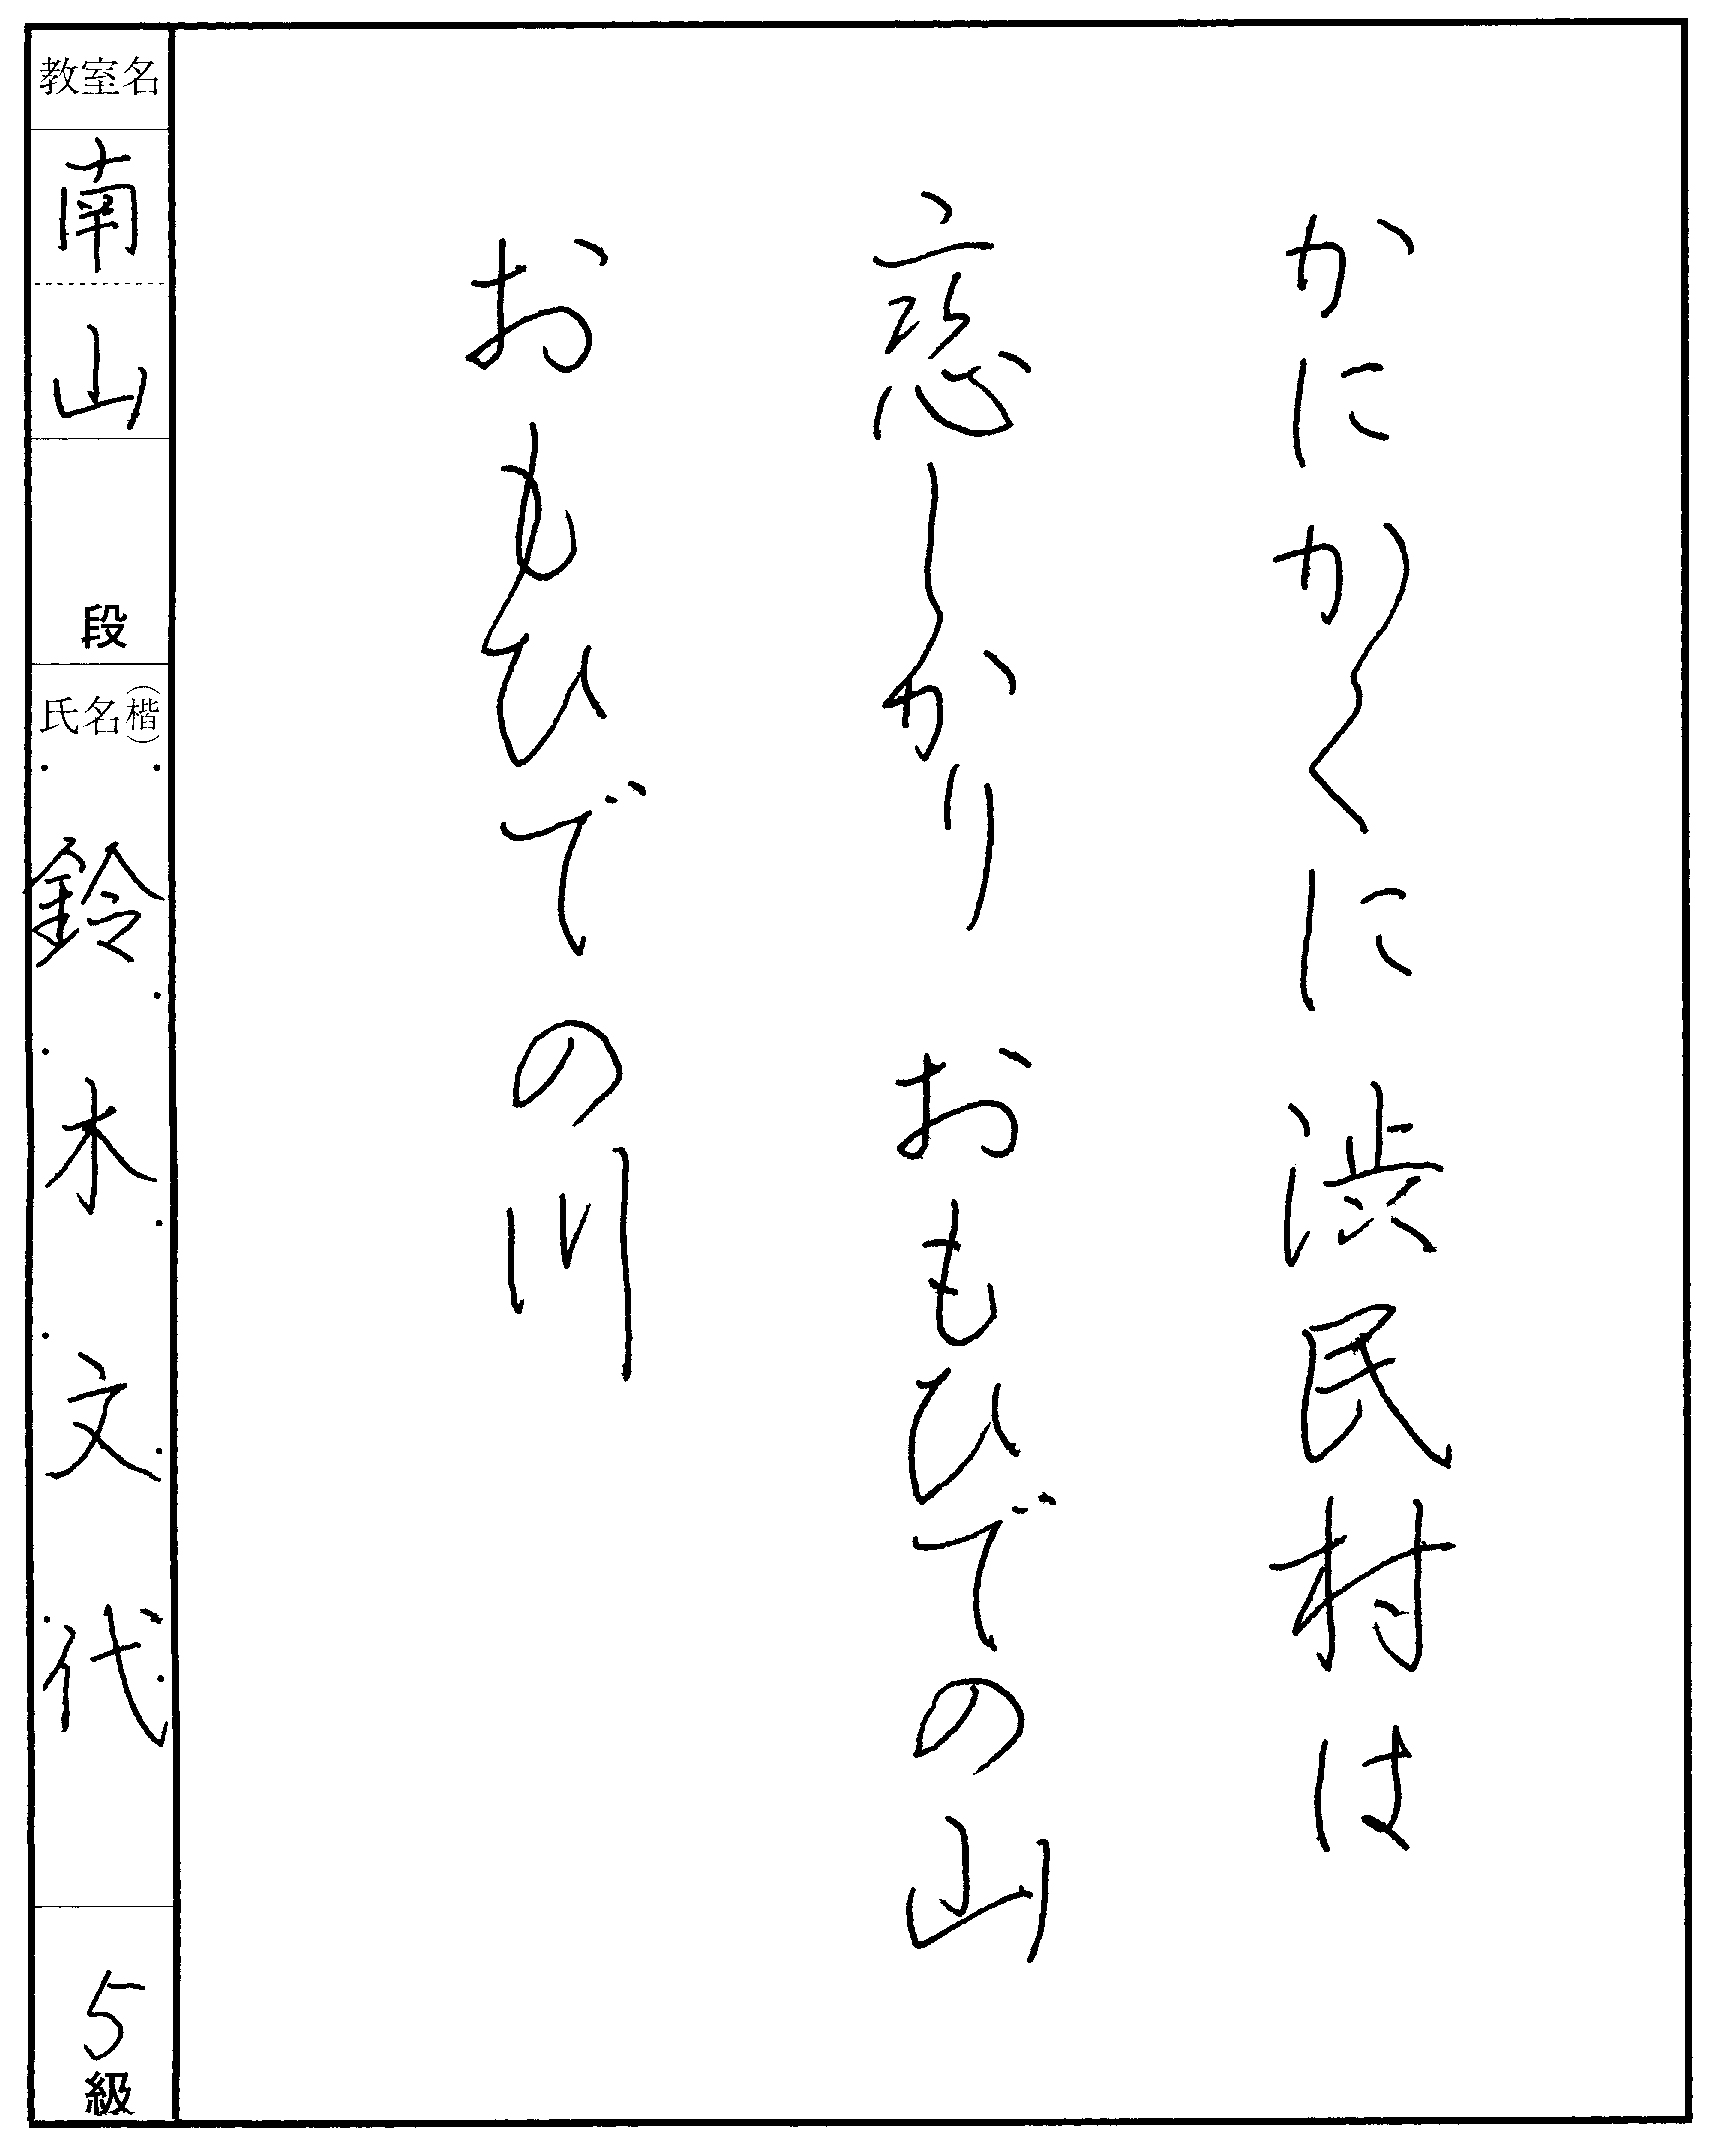 かにかくに渋民村は
恋しかり おもひでの山
おもひでの川
教室名
南山
段
氏名(楷)
鈴木文代
5級